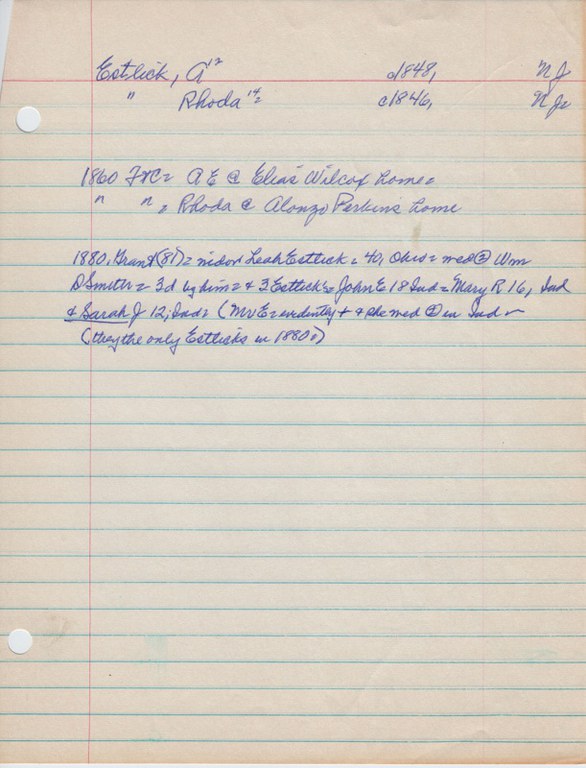 Estlick, A¹² c1848, N J
" Rhoda¹⁴² c1846, N J
1860 = A E @ Elias Wilcox home =
" " = Rhoda @ Alonzo Perkins home
1880, Grant (81) = widow Leah Estlick = 40, Ohio = med ② Wm
D Smith = 3d by him = & 3 Estlick's = John E 18 Ind = Mary R 16, Ind
& Sarah J 12, Ind = (Mr E = evidently + & she med ② in Ind
(they the only Estlicks in 1880=)